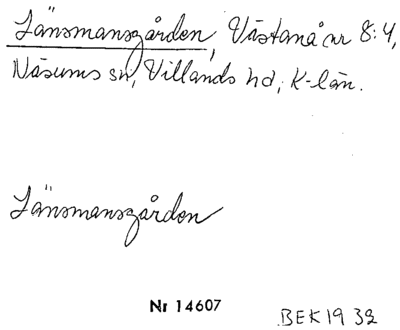 Länsmansgården, Västanå nr 8:4,
Näsums sn, Villands hd, K-län.
Länsmansgården
Nr 14607
BEK 1932